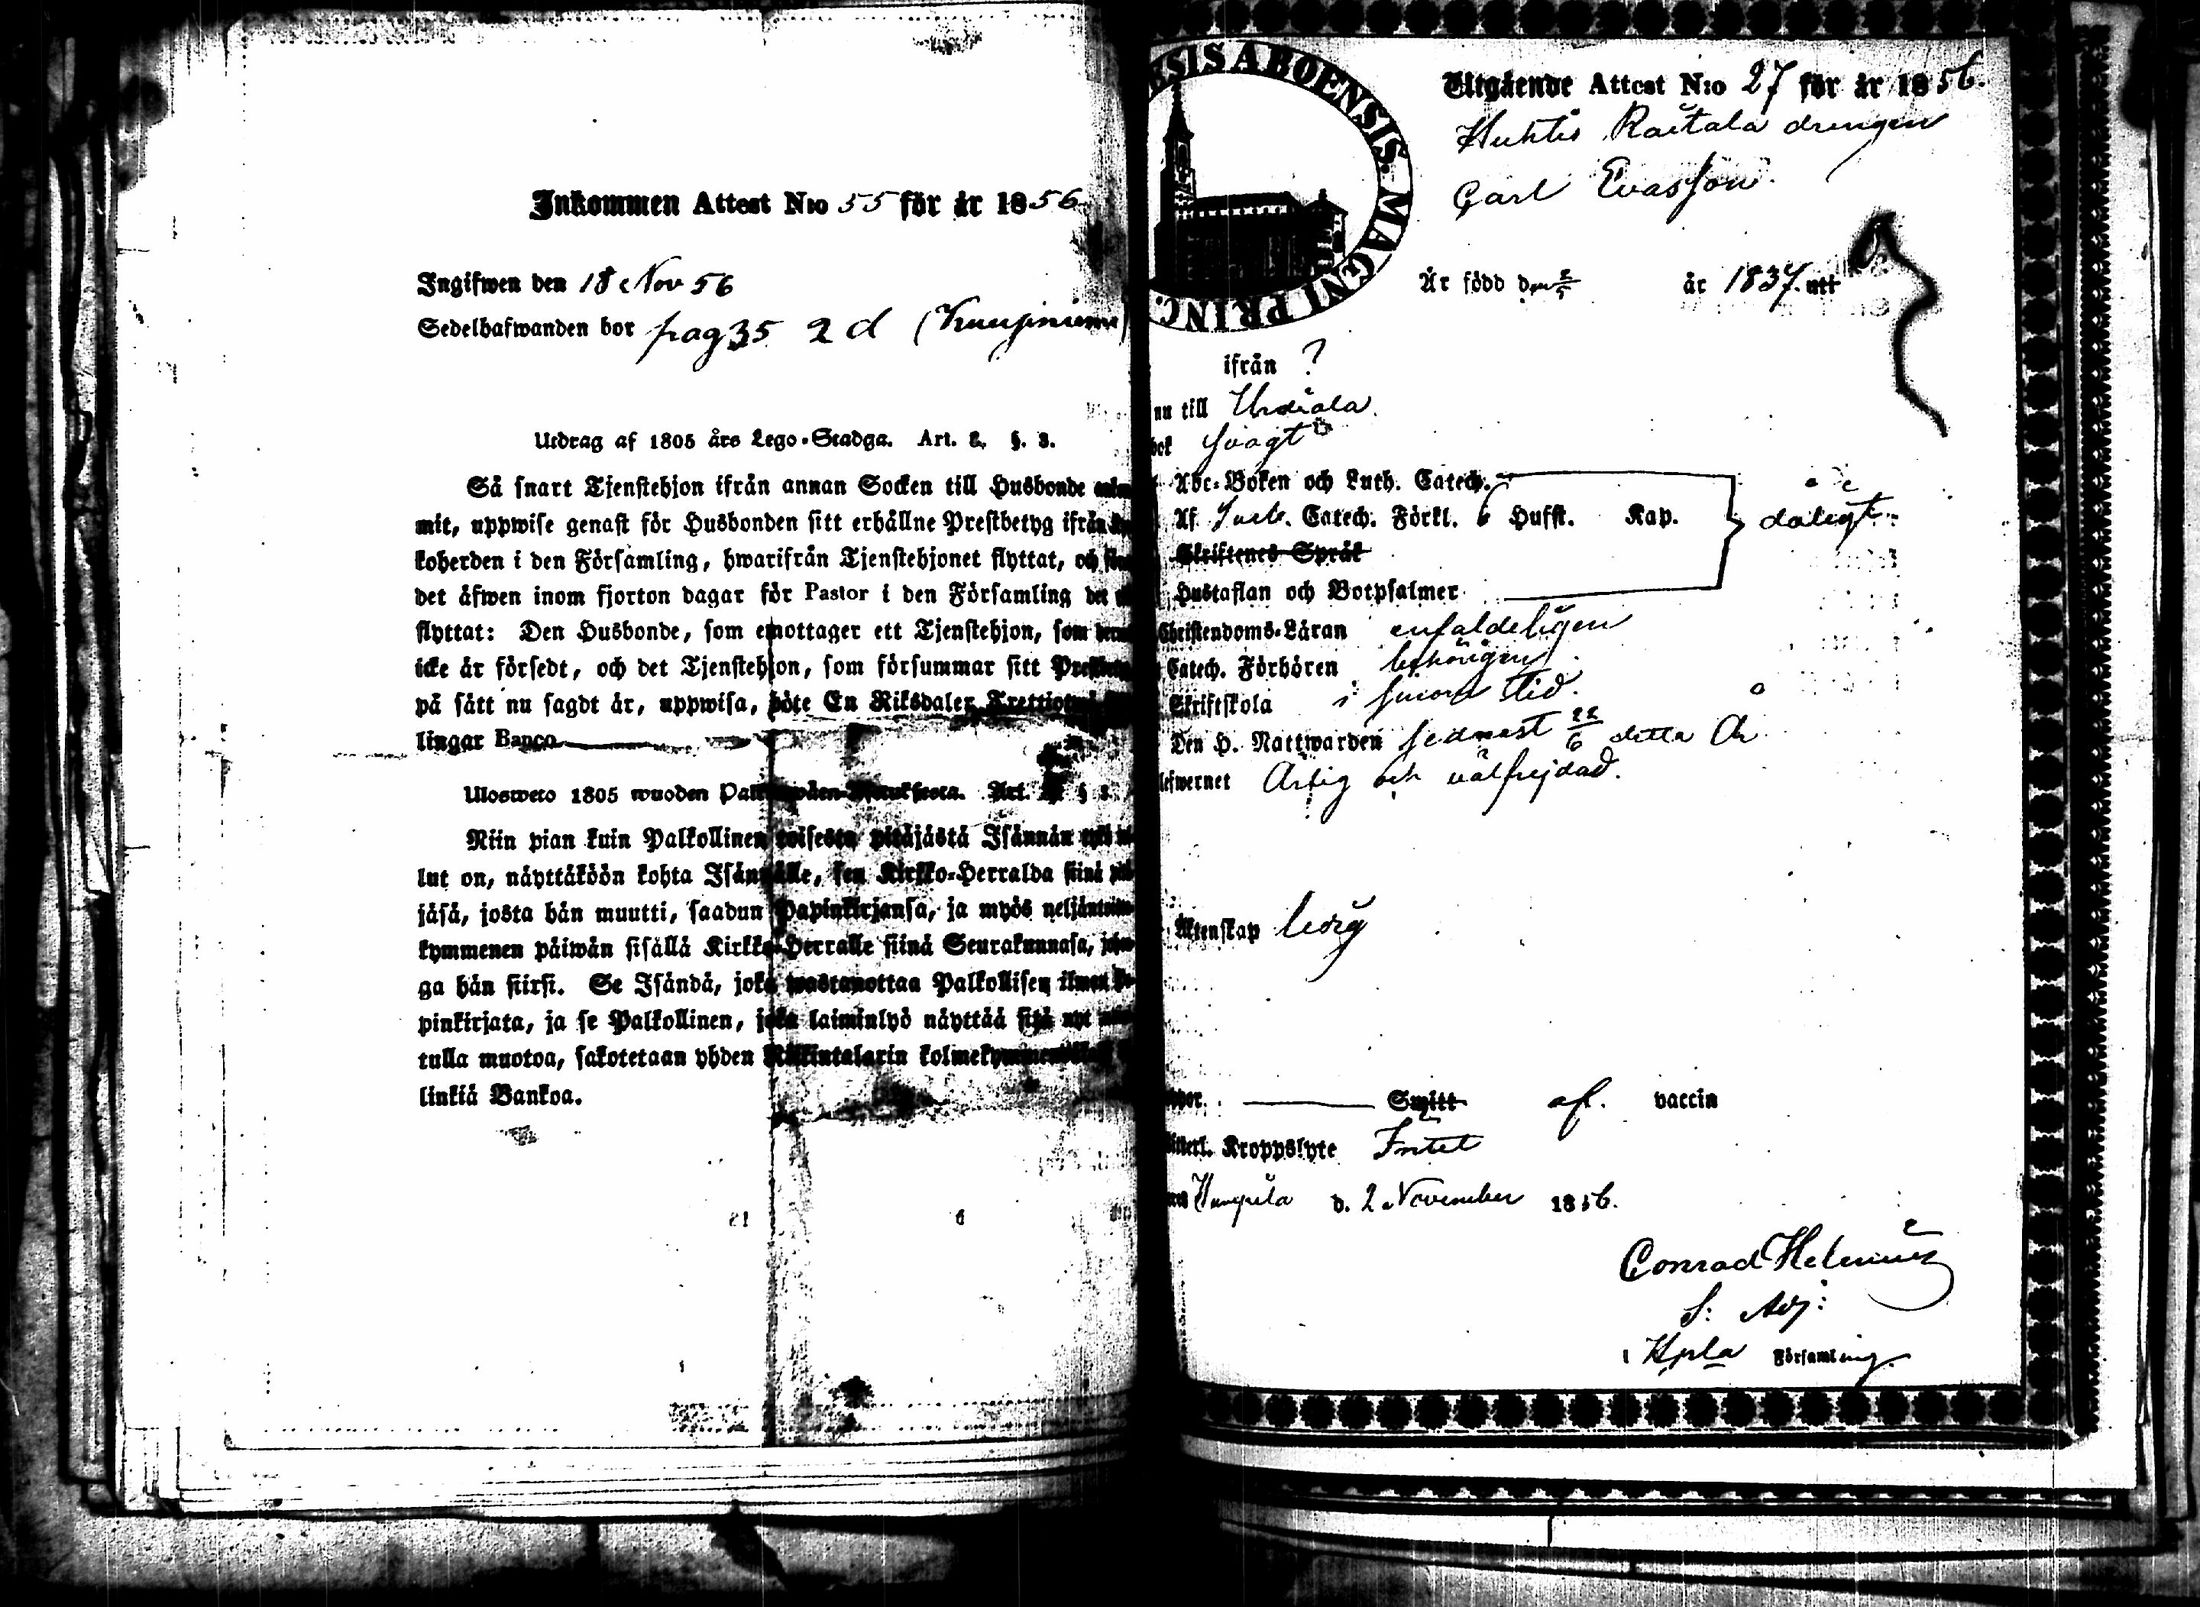 Inkommen Attest N:o 55 för år 1856
Ingifwen den 18 Nov 56
Sedelhafwanden bor pag 35 2 d
Utdrag af 1805 års Lego-Stadga. Art. §. 3.
Så snart Tjenstehjon ifrån annan Socken till Husbonde
mit, uppwise genast för Husbonden sitt erhållne Prestbetyg ifrån
koherden i den Församling, hwarifrån Tjenstehjonet flyttat, och
det äfwen inom fjorton dagar för Pastor i den Församling det
flyttat: Den Husbonde, som emottager ett Tjenstehjon, som
icke är försedt, och det Tjenstehjon, som försummar sitt
på sätt nu sagdt är, uppwisa, böte En Riksdaler
lingar Banco
Ulosweto 1805 wuoden
Niin pian kuin Palkollinen toisesta pitäjästä Isännän
lut on, näyttäköön kohta Isännälle, sen Kirkko-Herralda siinä
jäsä, josta hän muutti, saadun Papinkirjansa, ja myös
kymmenen päiwän sisällä Kirkko-Herralle siinä Seurakunnasa,
ga hän siirsi. Se Isändä, joka wastanottaa Palkollisen ilman
pinkirjata, ja se Palkollinen, joka laiminlyö näyttää sitä nyt
tulla muotoa, sakotetaan yhden Riikintalarin
linkiä Bankoa.
ABOENSIS. MAGNI PRINC.
Utgående Attest N:o 27 för år 1856.
Huhtis Raitala drengen
Carl Evasson.
Är född den år 1837. utt
ifrån ?
nu till Urdiala
bok svagt
Abc-Boken och Luth. Catech.
Af Catech. Förkl. 6 Hufst. Kap. dåligt.
Skriftenes Språk
Hustaflan och Botpsalmer
Christendoms-Läran enfaldeligen
Catech. Förhören behörigen
Skriftskola i sinom tid.
Den H. Nattwarden sednast 22/6 detta År
lefwernet Ärlig och välfrejdad.
Äktenskap ledig
Smitt af. vaccin
Kroppslyte Intet
d. 2 November 1856.
Conrad Helenius
S: Adj:
i Hpla Församling.